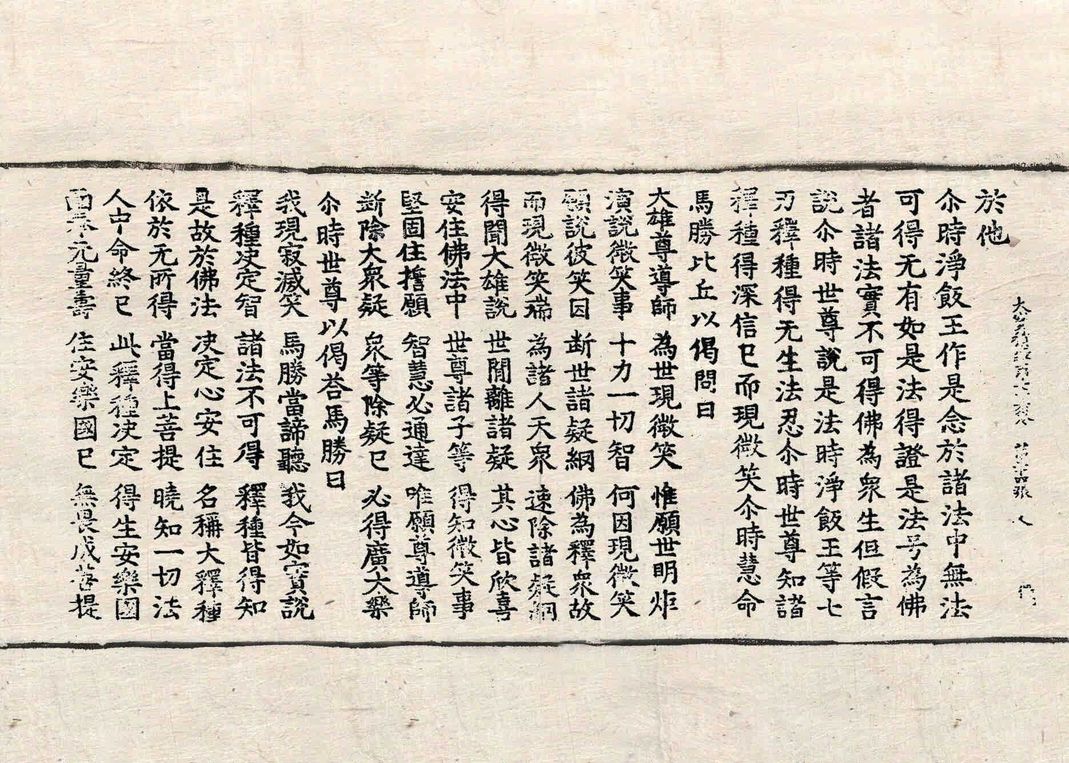 於他
尒時淨飯王作是念於諸法中無法
可得无有如是法得證是法号為佛
者諸法實不可得佛為衆生但假言
說尒時世尊說是法時淨飯王等七
万釋種得无生法忍尒時世尊知諸
釋種得深信已而現微笑尒時慧命
馬勝比丘以偈問曰
大雄尊導師 為世現微笑 惟願世明炬
演說微笑事 十力一切智 何因現微笑
願說彼笑因 断世諸疑網 佛為釋衆故
而現微笑瑞 為諸人天衆 速除諸疑網
得聞大雄說 世間離諸疑 其心皆欣喜
安住佛法中 世尊諸子等 得知微笑事
堅固住擔願 智慧必通達 唯願尊導師
断除大衆疑 衆等除疑已 必得廣大樂
尒時世尊以偈荅馬勝曰
我現寂滅笑 馬勝當諦聽 我今如實說
釋種决定智 諸法不可得 釋種皆得知
是故於佛法 决定心安住 名稱大釋種
依於无所得 當得上菩提 曉知一切法
人中命終已 此釋種决定 得生安樂國
面奉无量壽 住安樂國已 無畏成菩提